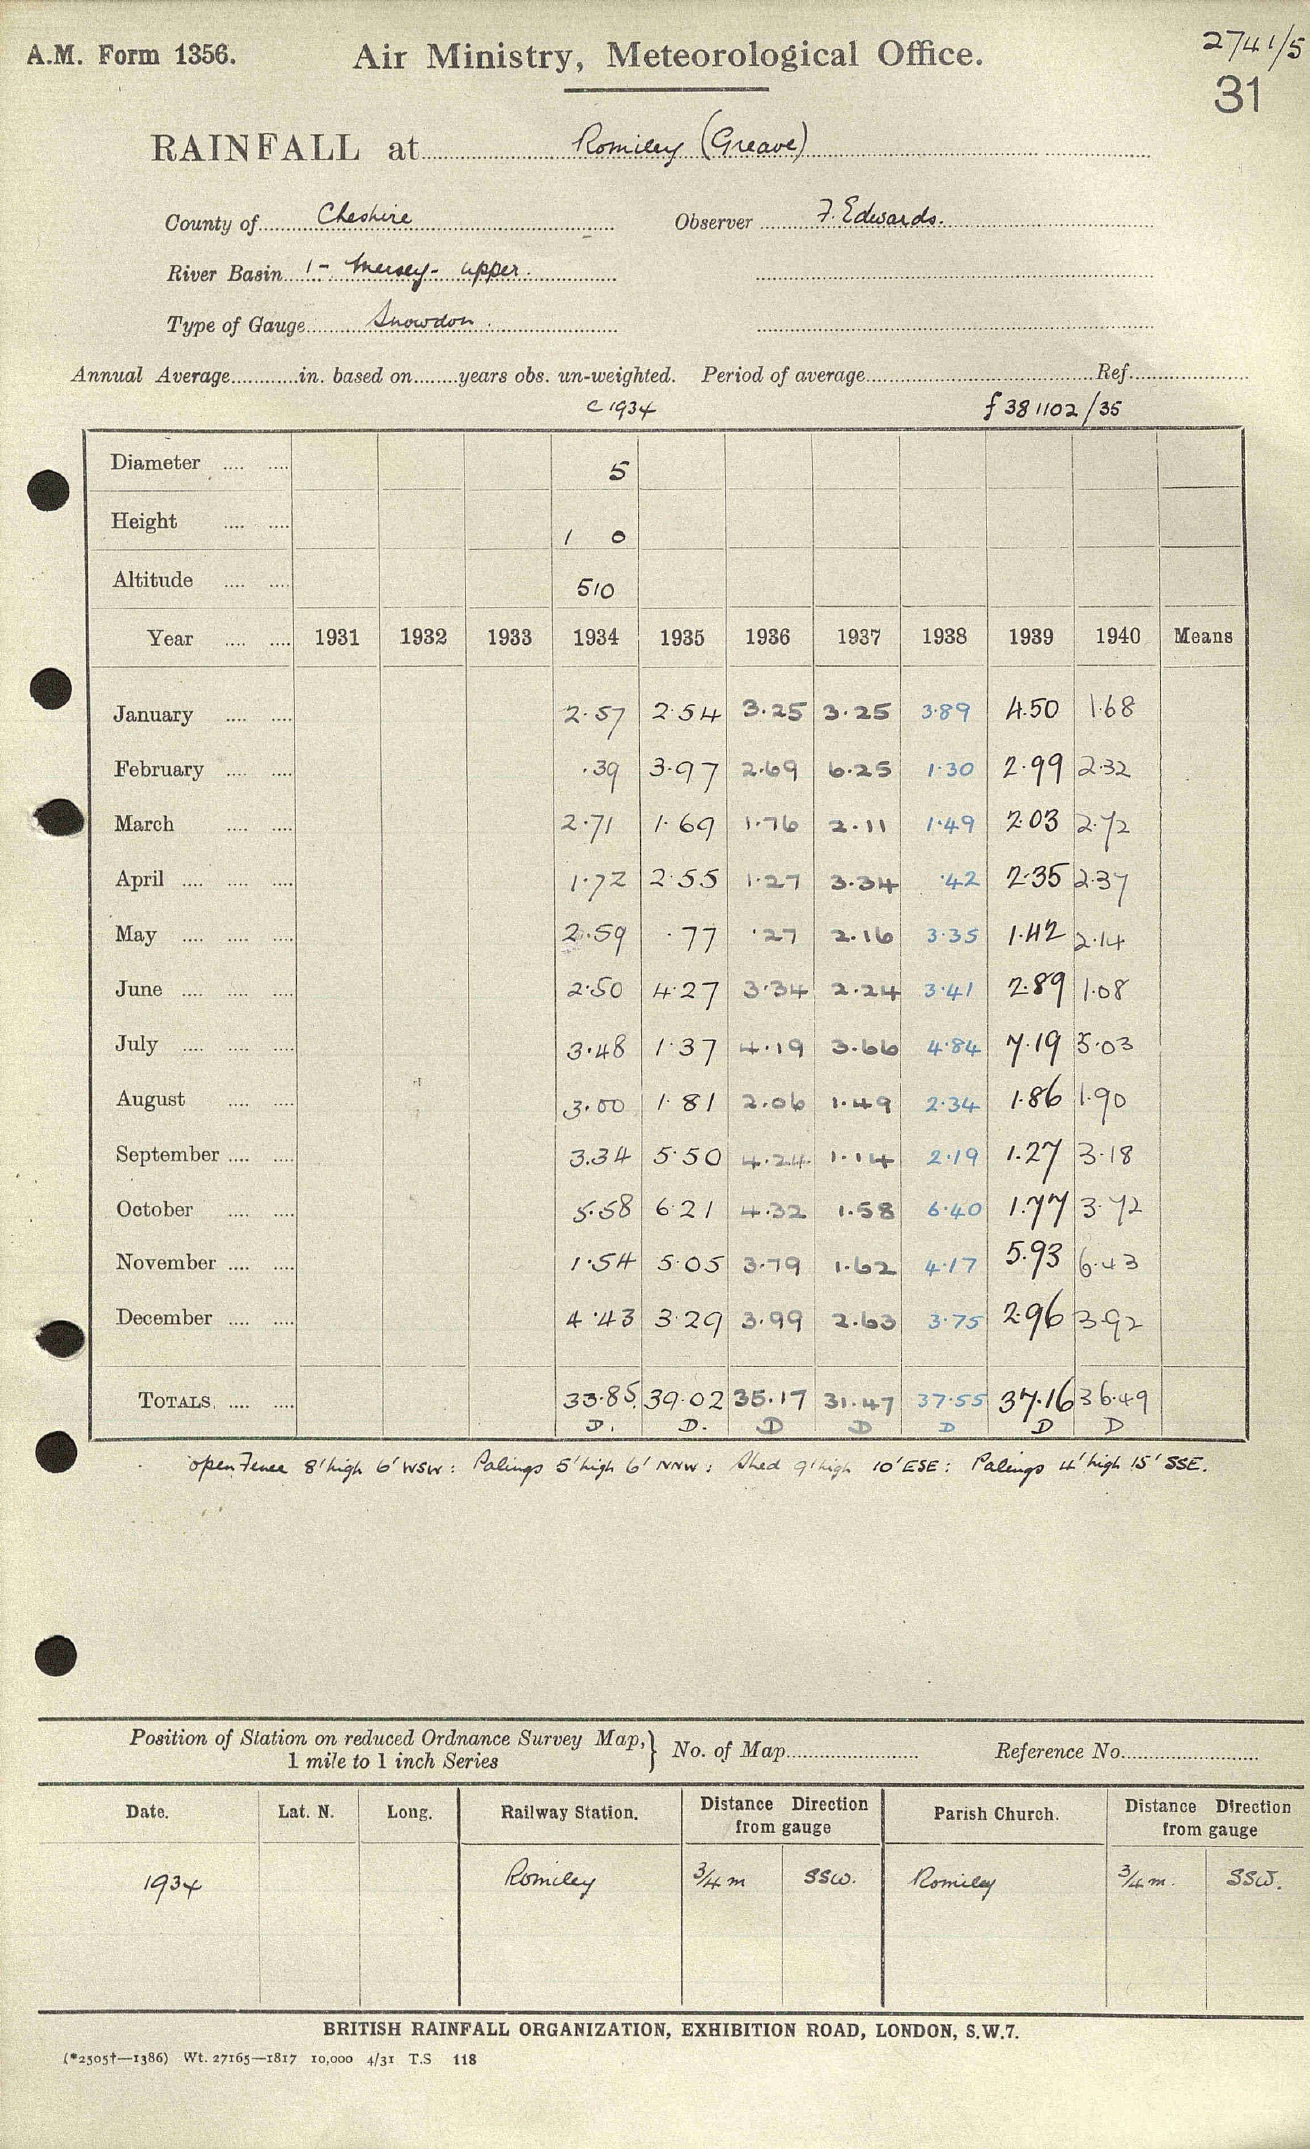 A.M. Form 1356. Air Ministry, Meteorological Office. 2741/5
31
RAINFALL at Romiley (Greave)
County of Cheshire Observer F. Edwards.
River Basin 1 - Mersey - upper.
Type of Gauge Snowdon.
Annual Average in. based on years obs. un-weighted. Period of average Ref.
c 1934 f 381102/35
Diameter 5
Height 1 0
Altitude 510
Year 1931 1932 1933 1934 1935 1936 1937 1938 1939 1940 Means
January 2.57 2.54 3.25 3.25 3.89 4.50 1.68
February .39 3.97 2.69 6.25 1.30 2.99 2.32
March 2.71 1.69 1.76 2.11 1.49 2.03 2.72
April 1.72 2.55 1.27 3.34 .42 2.35 2.37
May 2.59 .77 .27 2.16 3.35 1.42 2.14
June 2.50 4.27 3.34 2.24 3.41 2.89 1.08
July 3.48 1.37 4.19 3.66 4.84 7.19 5.03
August 3.00 1.81 2.06 1.49 2.34 1.86 1.90
September 3.34 5.50 4.24 1.14 2.19 1.27 3.18
October 5.58 6.21 4.32 1.58 6.40 1.77 3.72
November 1.54 5.05 3.79 1.62 4.17 5.93 6.43
December 4.43 3.29 3.99 2.63 3.75 2.96 3.92
TOTALS 33.85 39.02 35.17 31.47 37.55 37.16 36.49
D. D. D D D D D
open Fence 8' high 6' WSW: Palings 5' high 6' NNW: Shed 9' high 10' ESE: Palings 4' high 15' SSE.
Position of Station on reduced Ordnance Survey Map, 1 mile to 1 inch Series } No. of Map Reference No.
Date. Lat. N. Long. Railway Station. Distance Direction from gauge Parish Church. Distance Direction from gauge
1934 Romiley 3/4 m SSW. Romiley 3/4 m. SSW.
BRITISH RAINFALL ORGANIZATION, EXHIBITION ROAD, LONDON, S.W.7.
(*2505†—1386) Wt. 27165—1817 10,000 4/31 T.S 118